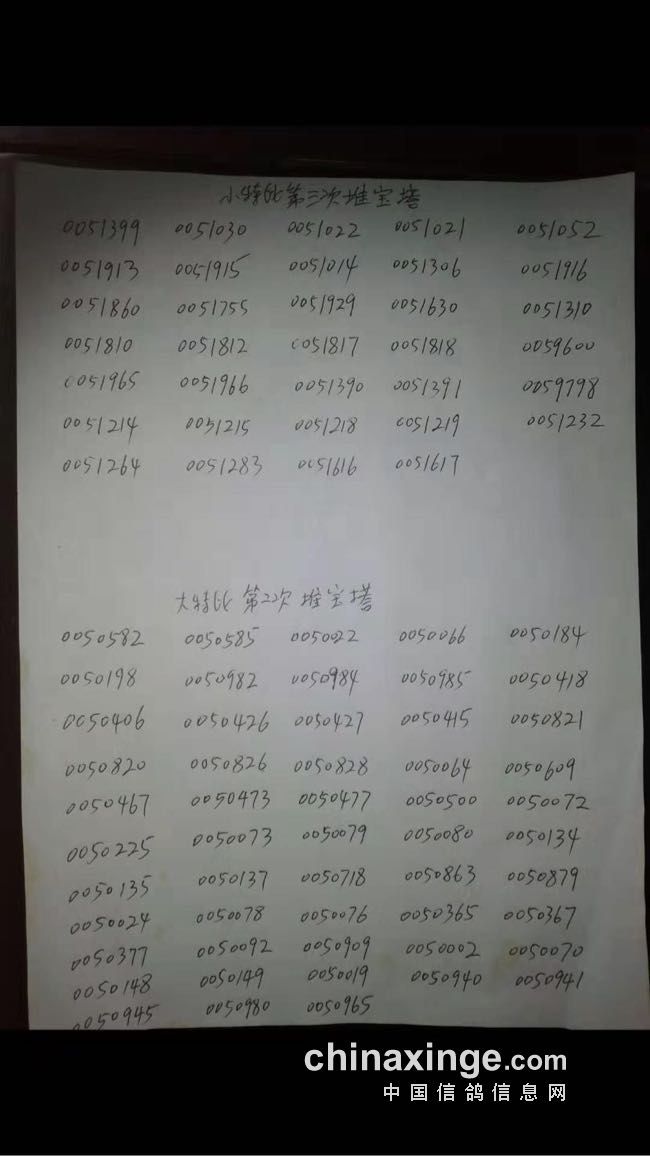 小特比第三次堆宝塔
0051399 0051030 0051022 0051021 0051052
0051913 0051915 0051014 0051306 0051916
0051860 0051755 0051929 0051630 0051310
0051810 0051812 0051817 0051818 0059600
0051965 0051966 0051390 0051391 0059798
0051214 0051215 0051218 0051219 0051232
0051264 0051283 0051616 0051617
大特比第二次堆宝塔
0050582 0050585 0050022 0050066 0050184
0050198 0050982 0050984 0050985 0050418
0050406 0050426 0050427 0050415 0050821
0050820 0050826 0050828 0050064 0050609
0050467 0050473 0050477 0050500 0050072
0050225 0050073 0050079 0050080 0050134
0050135 0050137 0050718 0050863 0050879
0050024 0050078 0050076 0050365 0050367
0050377 0050092 0050909 0050002 0050070
0050148 0050149 0050019 0050940 0050941
0050945 0050980 0050965
chinaxinge.com
中国信鸽信息网